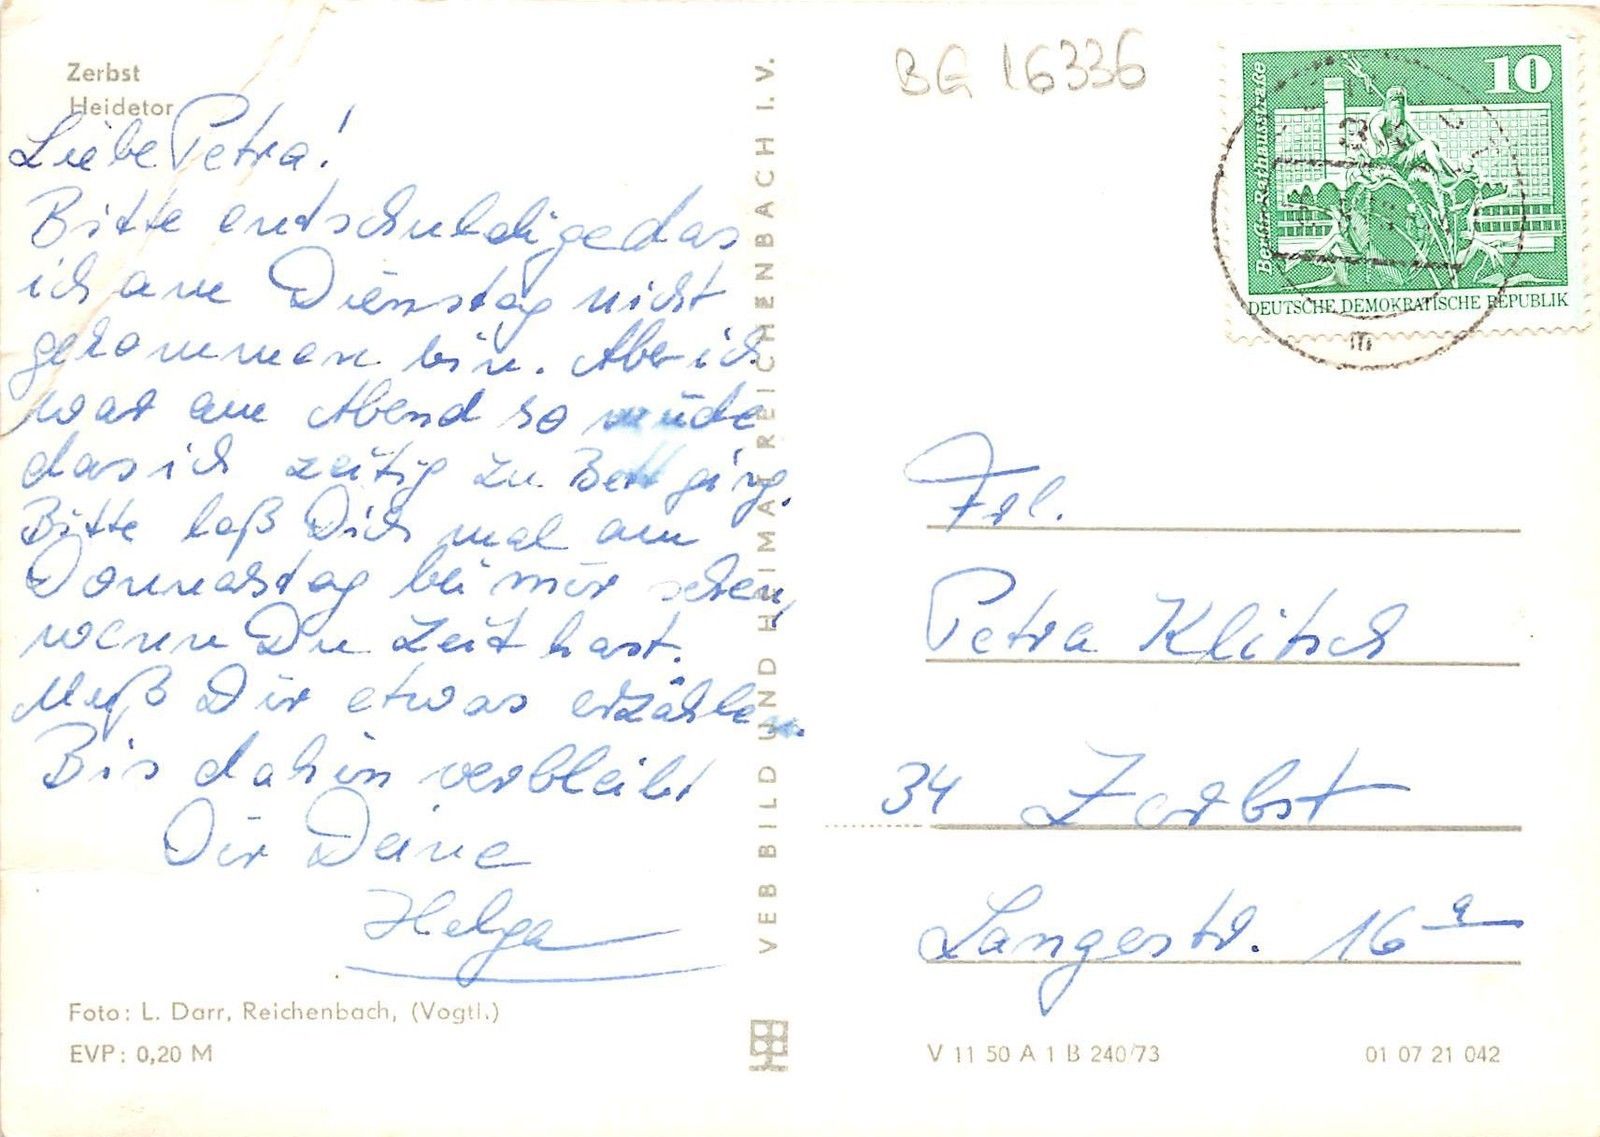 Zerbst
Heidetor
Liebe Petra!
Bitte entschuldige das
ich am Dienstag nicht
gekommen bin. Aber ich
war am Abend so müde
das ich zeitig zu Bett ging.
Bitte laß Dich mal am
Donnerstag bei mir sehen,
wenn Du Zeit hast.
Muß Dir etwas erzählen.
Bis dahin verbleibt
Dir Deine
Helga
Foto: L. Darr, Reichenbach, (Vogtl.)
EVP: 0,20 M
VEB BILD UND HEIMAT REICHENBACH I. V.
BG 16336
10
Berlin-Rathausstraße
DEUTSCHE DEMOKRATISCHE REPUBLIK
m
Frl.
Petra Klitsch
34 Zerbst
Langestr. 16 a
V 11 50 A 1 B 240/73
01 07 21 042